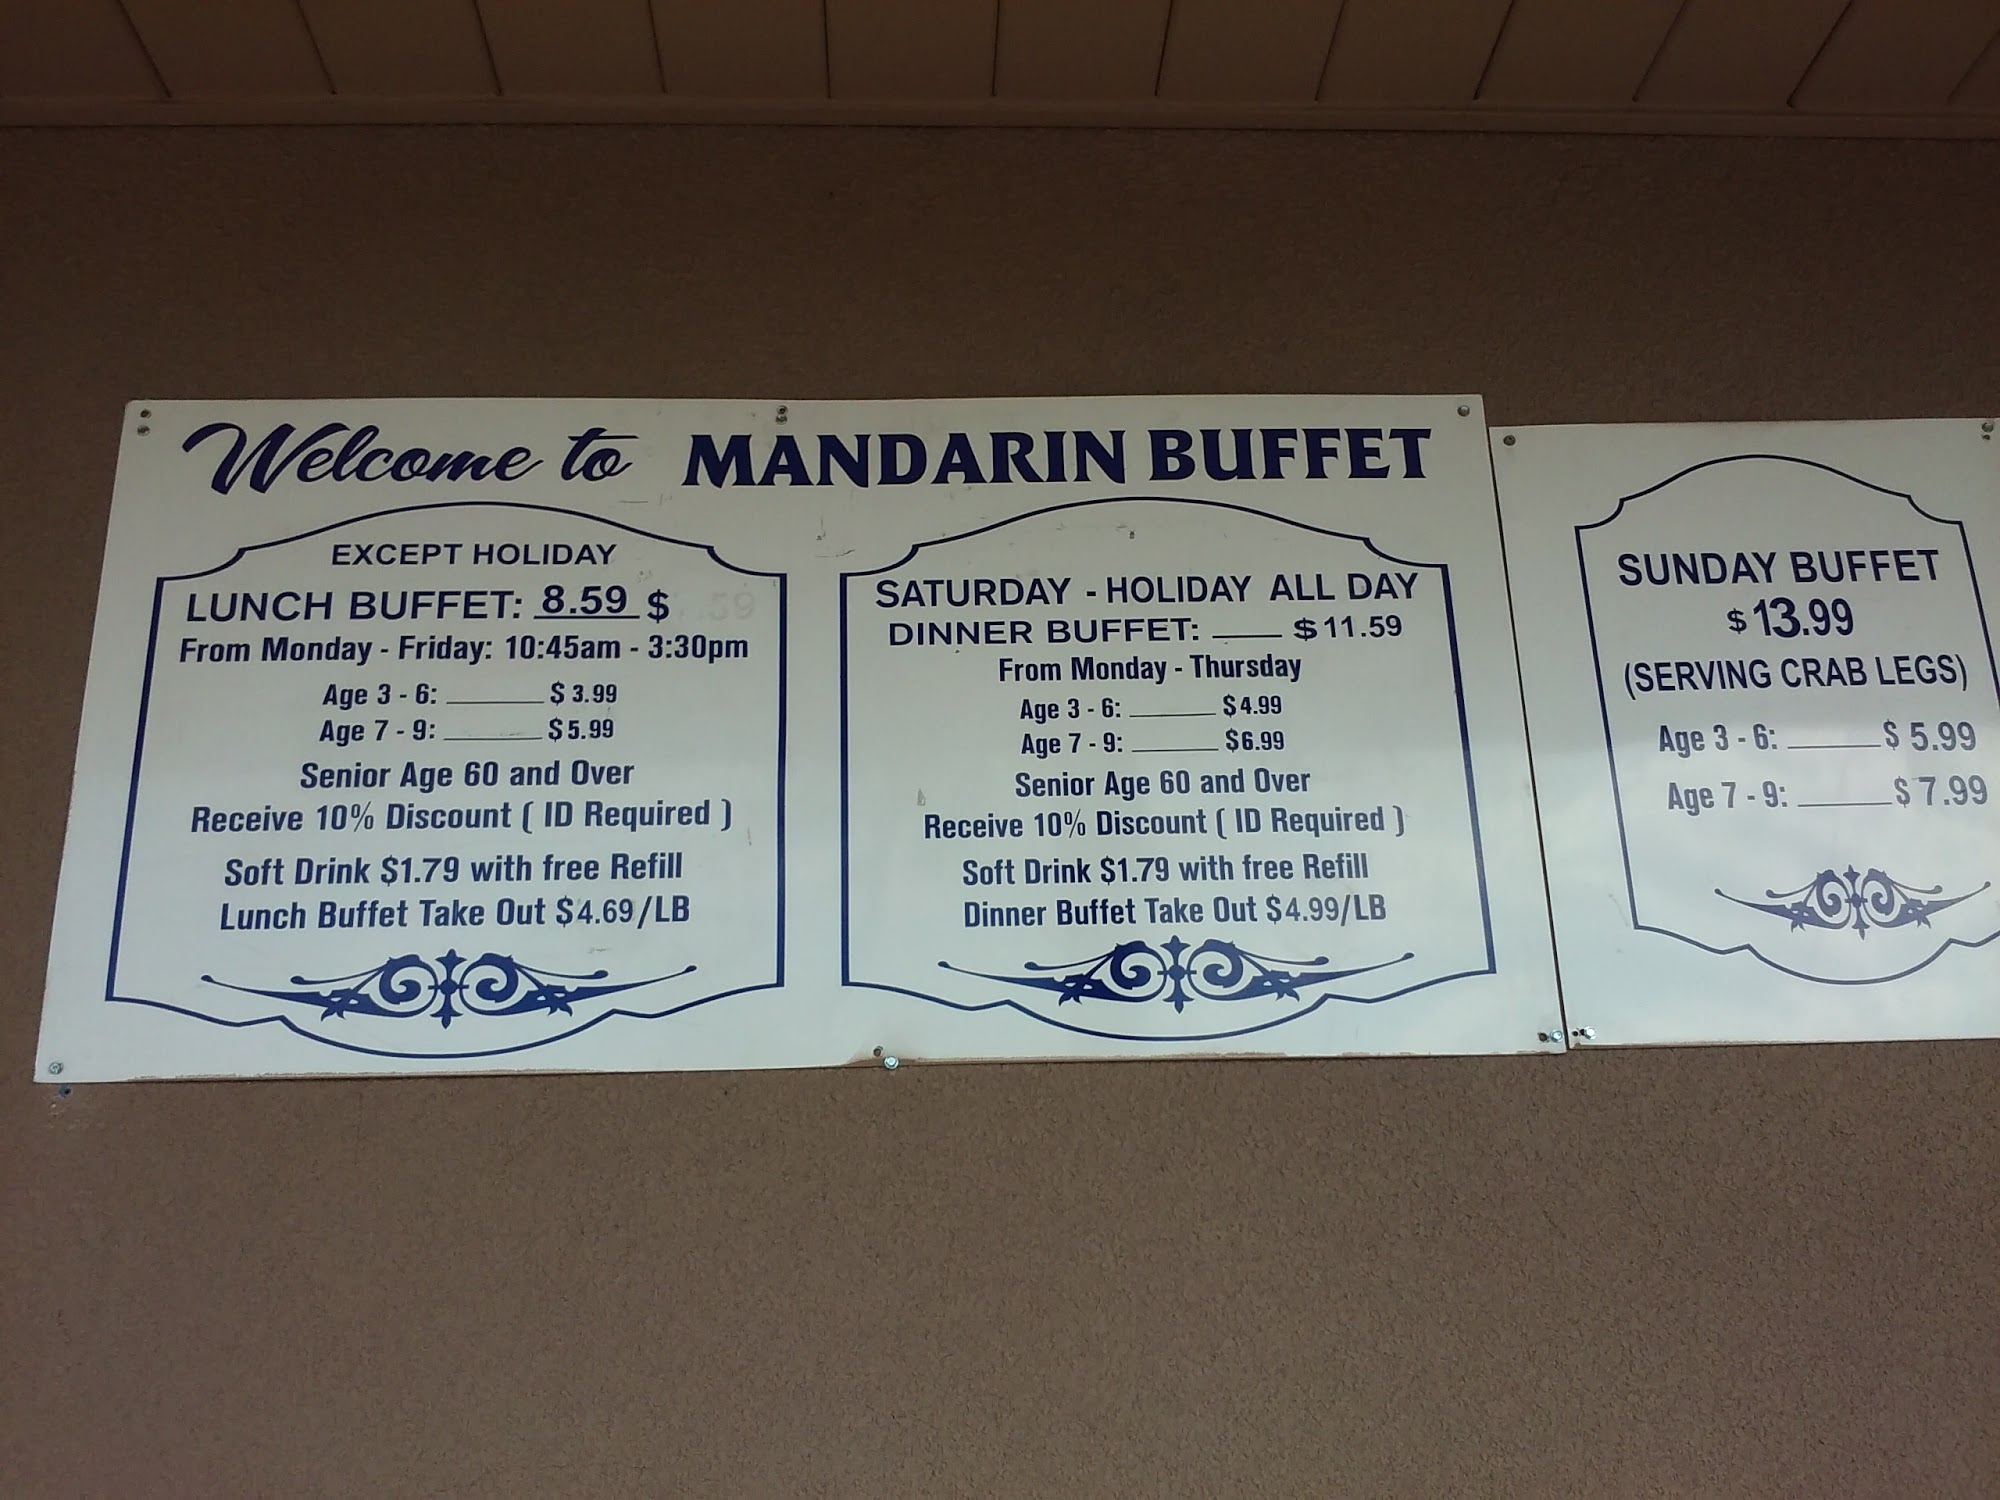 Welcome to MANDARIN BUFFET
EXCEPT HOLIDAY
LUNCH BUFFET: 8.59 $
From Monday - Friday: 10:45am - 3:30pm
Age 3 - 6: ______ $ 3.99
Age 7 - 9: ______ $ 5.99
Senior Age 60 and Over
Receive 10% Discount ( ID Required )
Soft Drink $1.79 with free Refill
Lunch Buffet Take Out $4.69/LB
SATURDAY - HOLIDAY ALL DAY
DINNER BUFFET: ____ $11.59
From Monday - Thursday
Age 3 - 6: ______ $4.99
Age 7 - 9: ______ $6.99
Senior Age 60 and Over
Receive 10% Discount ( ID Required )
Soft Drink $1.79 with free Refill
Dinner Buffet Take Out $4.99/LB
SUNDAY BUFFET
$ 13.99
(SERVING CRAB LEGS)
Age 3 - 6: ______ $ 5.99
Age 7 - 9: ______ $ 7.99